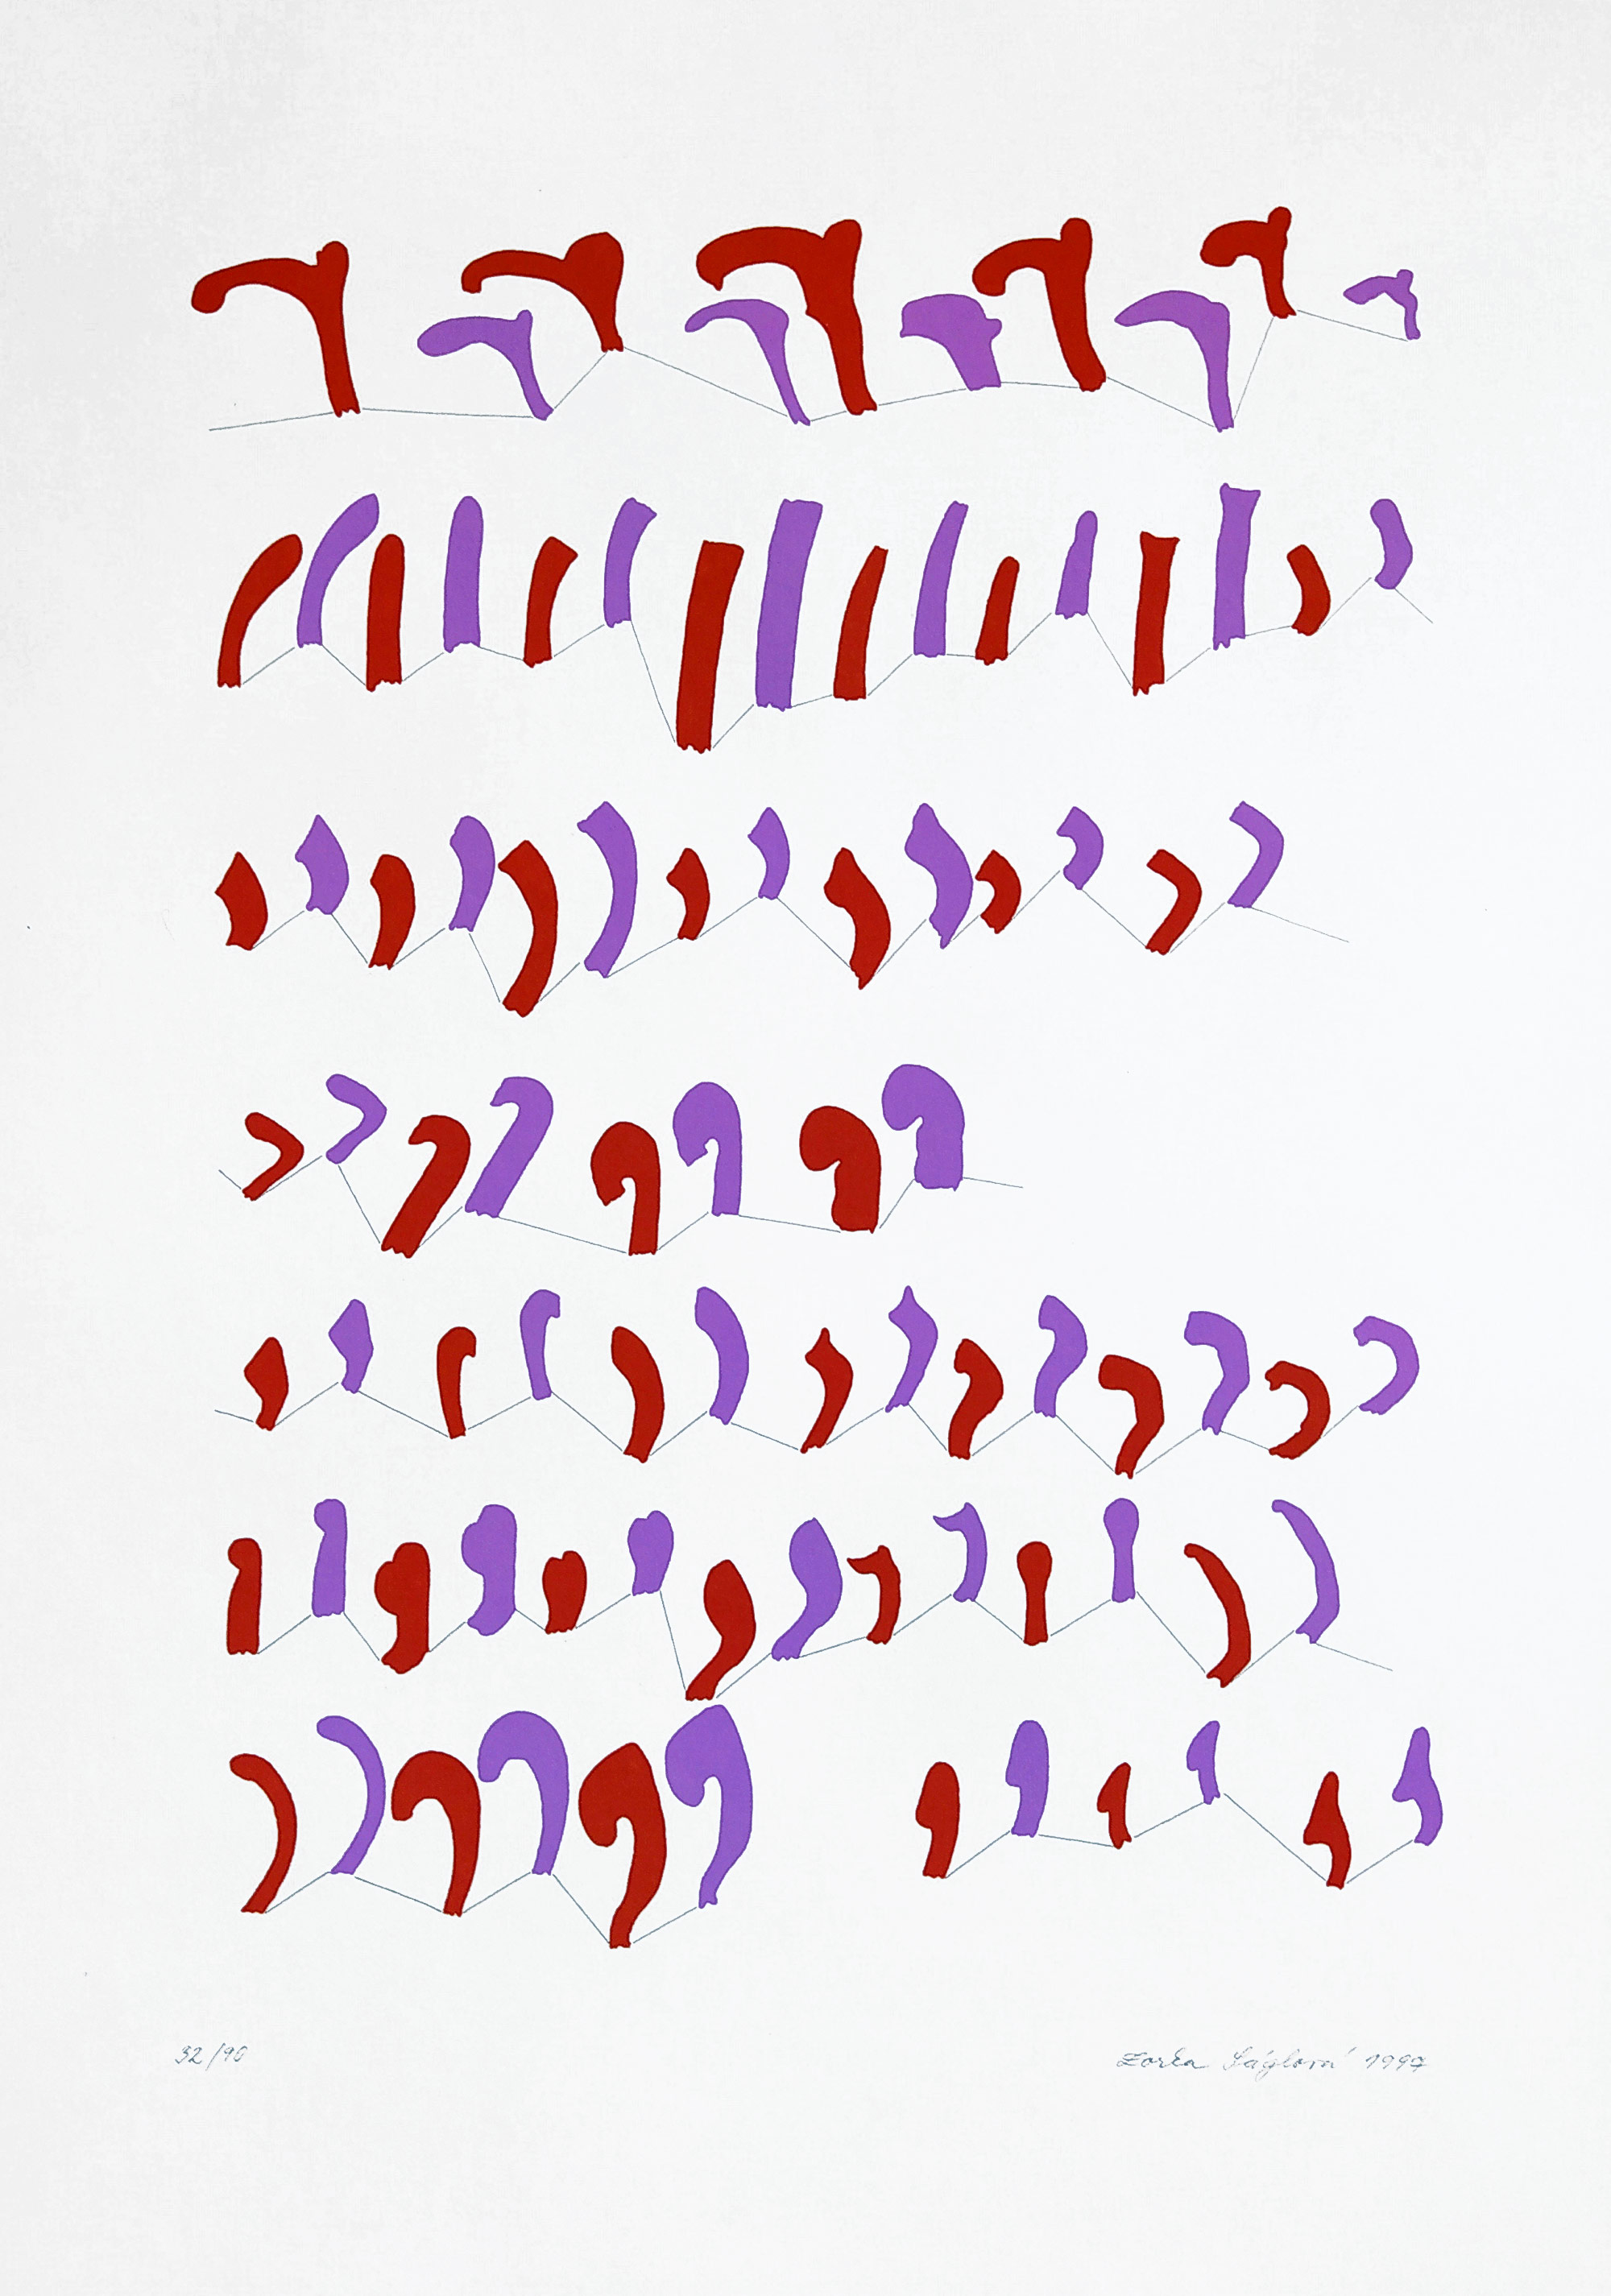 32/90
Zorka Ságlová 1997